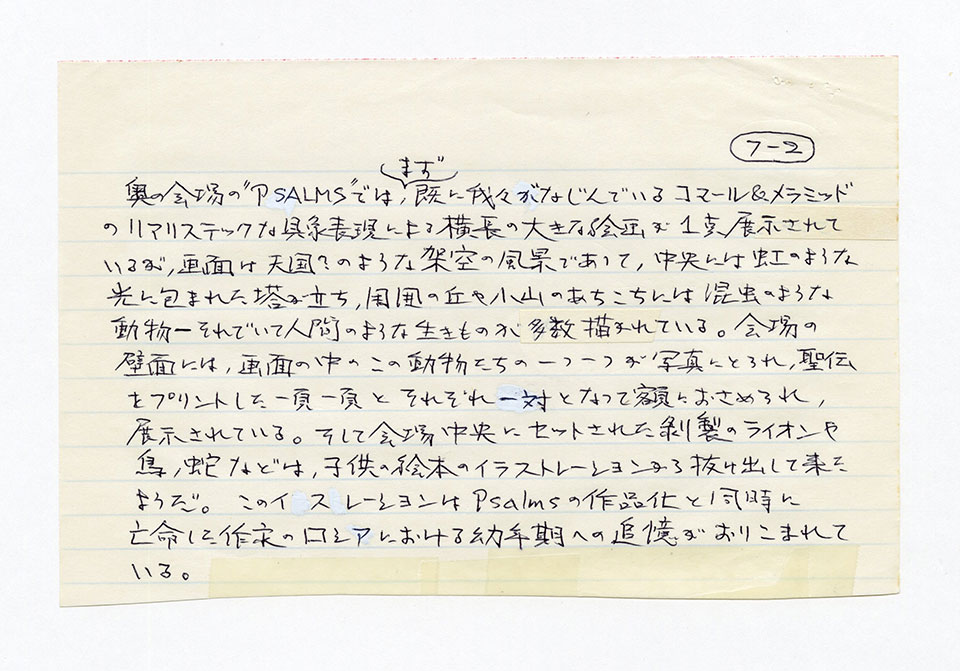 7-2
まず
奥の会場の"PSALMS"では,既に我々がなじんでいるコマール&メラミッド
のリアリステックな具象表現による横長の大きな絵画が1点展示されて
いるが,画面は天国?のような架空の風景であって,中央には虹のような
光に包まれた塔が立ち,周囲の丘や小山のあちこちには混虫のような
動物ーそれでいて人間のような生きものが多数描かれている。会場の
壁面には,画面の中のこの動物たちの一つ一つが写真にとられ,聖伝
をプリントした一頁一頁とそれぞれ一対となって額におさめられ,
展示されている。そして会場中央にセットされた剥製のライオンや
鳥,蛇などは,子供の絵本のイラストレーションから抜け出して来た
ようだ。このイストレーションはPsalmsの作品化と同時に
亡命した作家のロシアにおける幼年期への追憶がおりこまれて
いる。